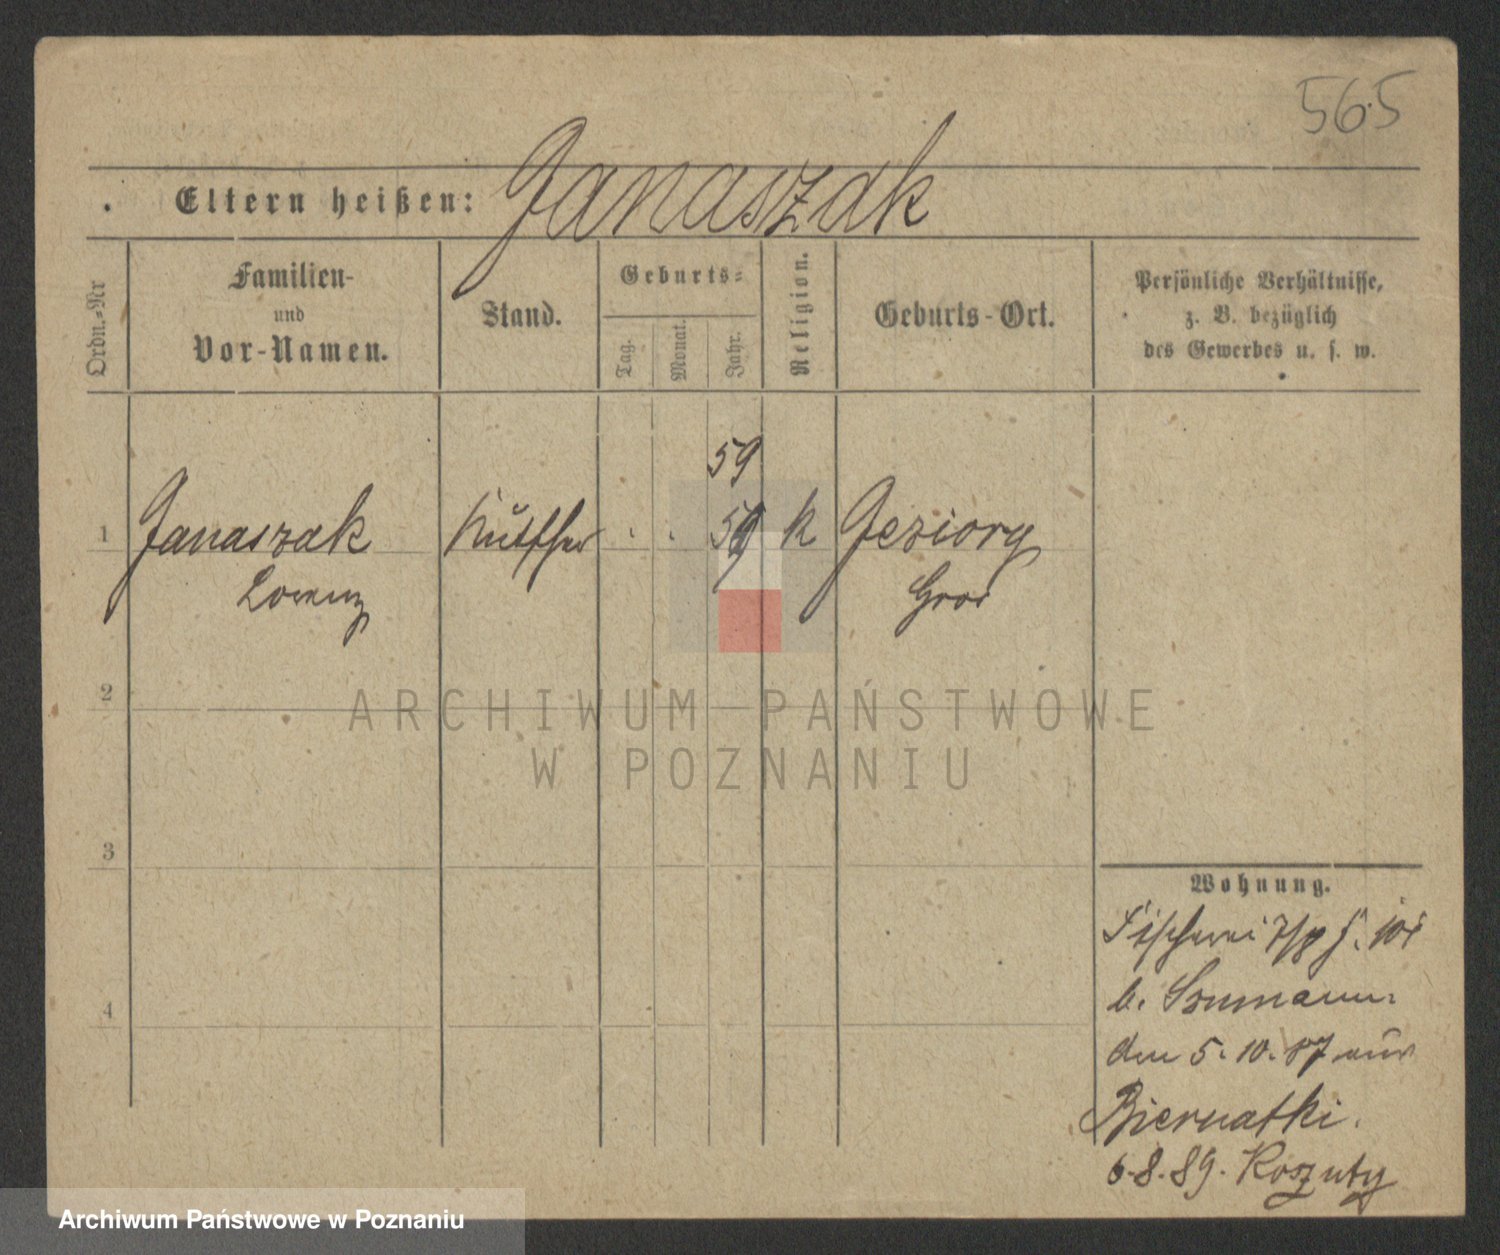 565
Eltern heißen: Janaszak
Ordn.-Nr
Familien-
und
Vor-Namen.
Stand.
Geburts-
Tag.
Monat.
Jahr.
Religion.
Geburts-Ort.
Persönliche Verhältnisse,
z. B. bezüglich
des Gewerbes u. s. w.
59
1 Janaszak Kutscher 59 k Jeziory
Lorenz
2
ARCHIWUM PAŃSTWOWE
W POZNANIU
3
Wohnung.
Fischerei
b.
4
den 5. 10. 87
Biernatki.
6. 8. 89. Koszuty
Archiwum Państwowe w Poznaniu